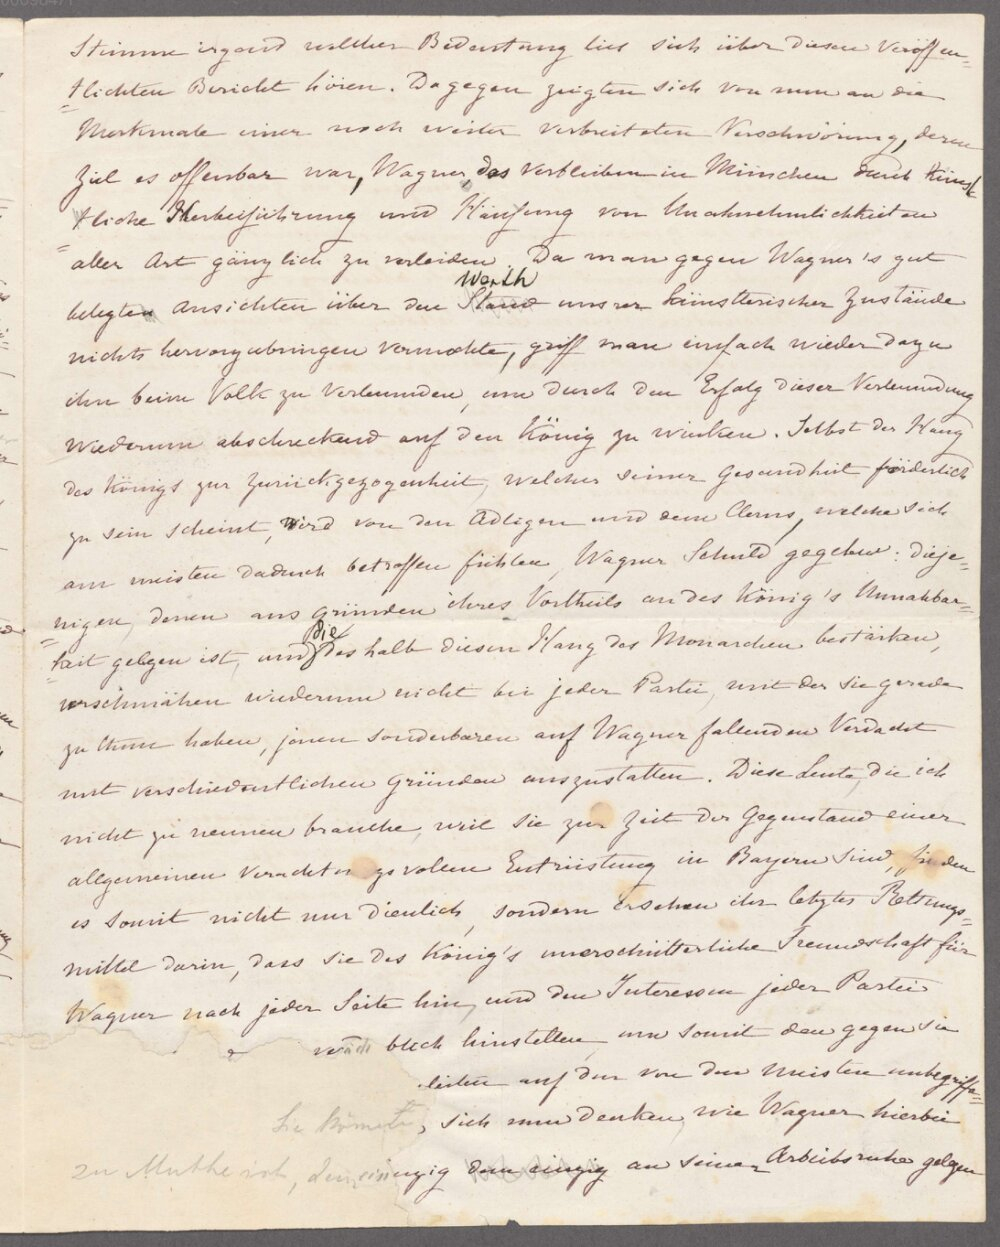 Stimme irgend welcher Bedeutung lies sich über diesen veröffen=
=tlichten Bericht hören. Dagegen zeigten sich von nun an die
Merkmale einer noch weiter verbreiteten Verschwörung, deren
Ziel es offenbar war, Wagner das Verbleiben in München durch künst
=liche Herbeiführung und Häufung von Unahnehmlichkeiten
aller Art gänzlich zu verleiden. Da man gegen Wagner's gut
Werth
belegten Ansichten über den Stand unsrer künstlerischer Zustände
nichts hervorzubringen vermochte, griff man einfach wieder dazu
ihn beim Volk zu verleumden, um durch den Erfolg dieser Verleumdung
wiederum abschreckend auf den König zu wirken. Selbst der Hang
des Königs zur Zurückgezogenheit, welcher seiner Gesundheit förderlich
zu sein scheint, wird von den Adligen und dem Clerus, welche sich
am meisten dadurch betroffen fühlen, Wagner Schuld gegeben: dieje=
nigen, denen aus Gründen ihres Vortheils an des König's Unnahbar=
die
=keit gelegen ist, und deshalb diesen Hang des Monarchen bestärken,
verschmähen wiederum nicht bei jeder Partei, mit der sie gerade
zu thun haben, jenen sonderbaren auf Wagner fallenden Verdacht
mit verschiedentlichen Gründen auszustatten. Diese Leute, die ich
nicht zu nennen brauche, weil sie zur Zeit der Gegenstand einer
allgemeinen verachtungsvollen Entrüstung in Bayern sind, finden
es somit nicht nur dienlich, sondern ersehen ihr letztes Rettungs=
mittel darin, dass sie des König's unerschütterliche Freundschaft für
Wagner nach jeder Seite hin, und den Interessen jeder Partei
blich hinstellen, um somit den gegen sie
leiten auf den von den Meisten unbegriffe=
Sie können, sich nun denken, wie Wagner hierbei
zu Muthe ist, dem einzig an seiner Arbeitsruhe gelegen